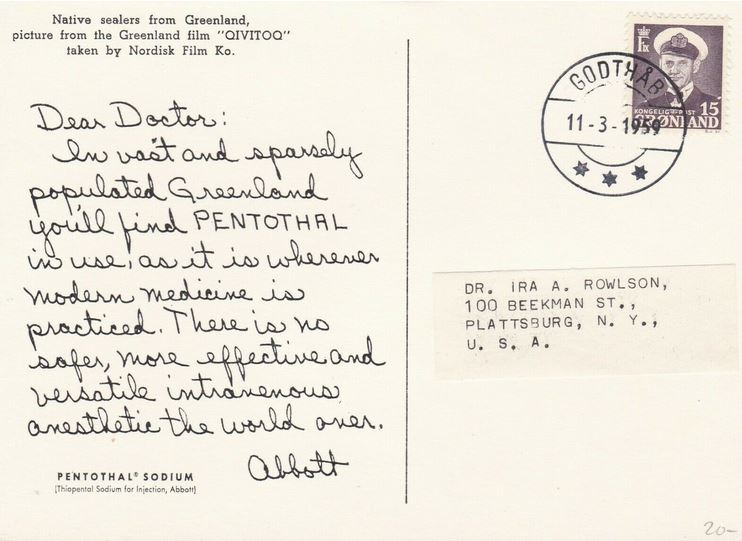 Native sealers from Greenland,
picture from the Greenland film "QIVITOQ"
taken by Nordisk Film Ko.
Dear Doctor:
In vast and sparsely
populated Greenland
you'll find PENTOTHAL
in use, as it is wherever
modern medicine is
practiced. There is no
safer, more effective and
versatile intravenous
anesthetic the world over.
Abbott
PENTOTHAL® SODIUM
(Thiopental Sodium for Injection, Abbott)
GODTHÅB
11-3-1959
KONGELIG POST 15
GRØNLAND
DR. IRA A. ROWLSON,
100 BEEKMAN ST.,
PLATTSBURG, N. Y.,
U. S. A.
20-